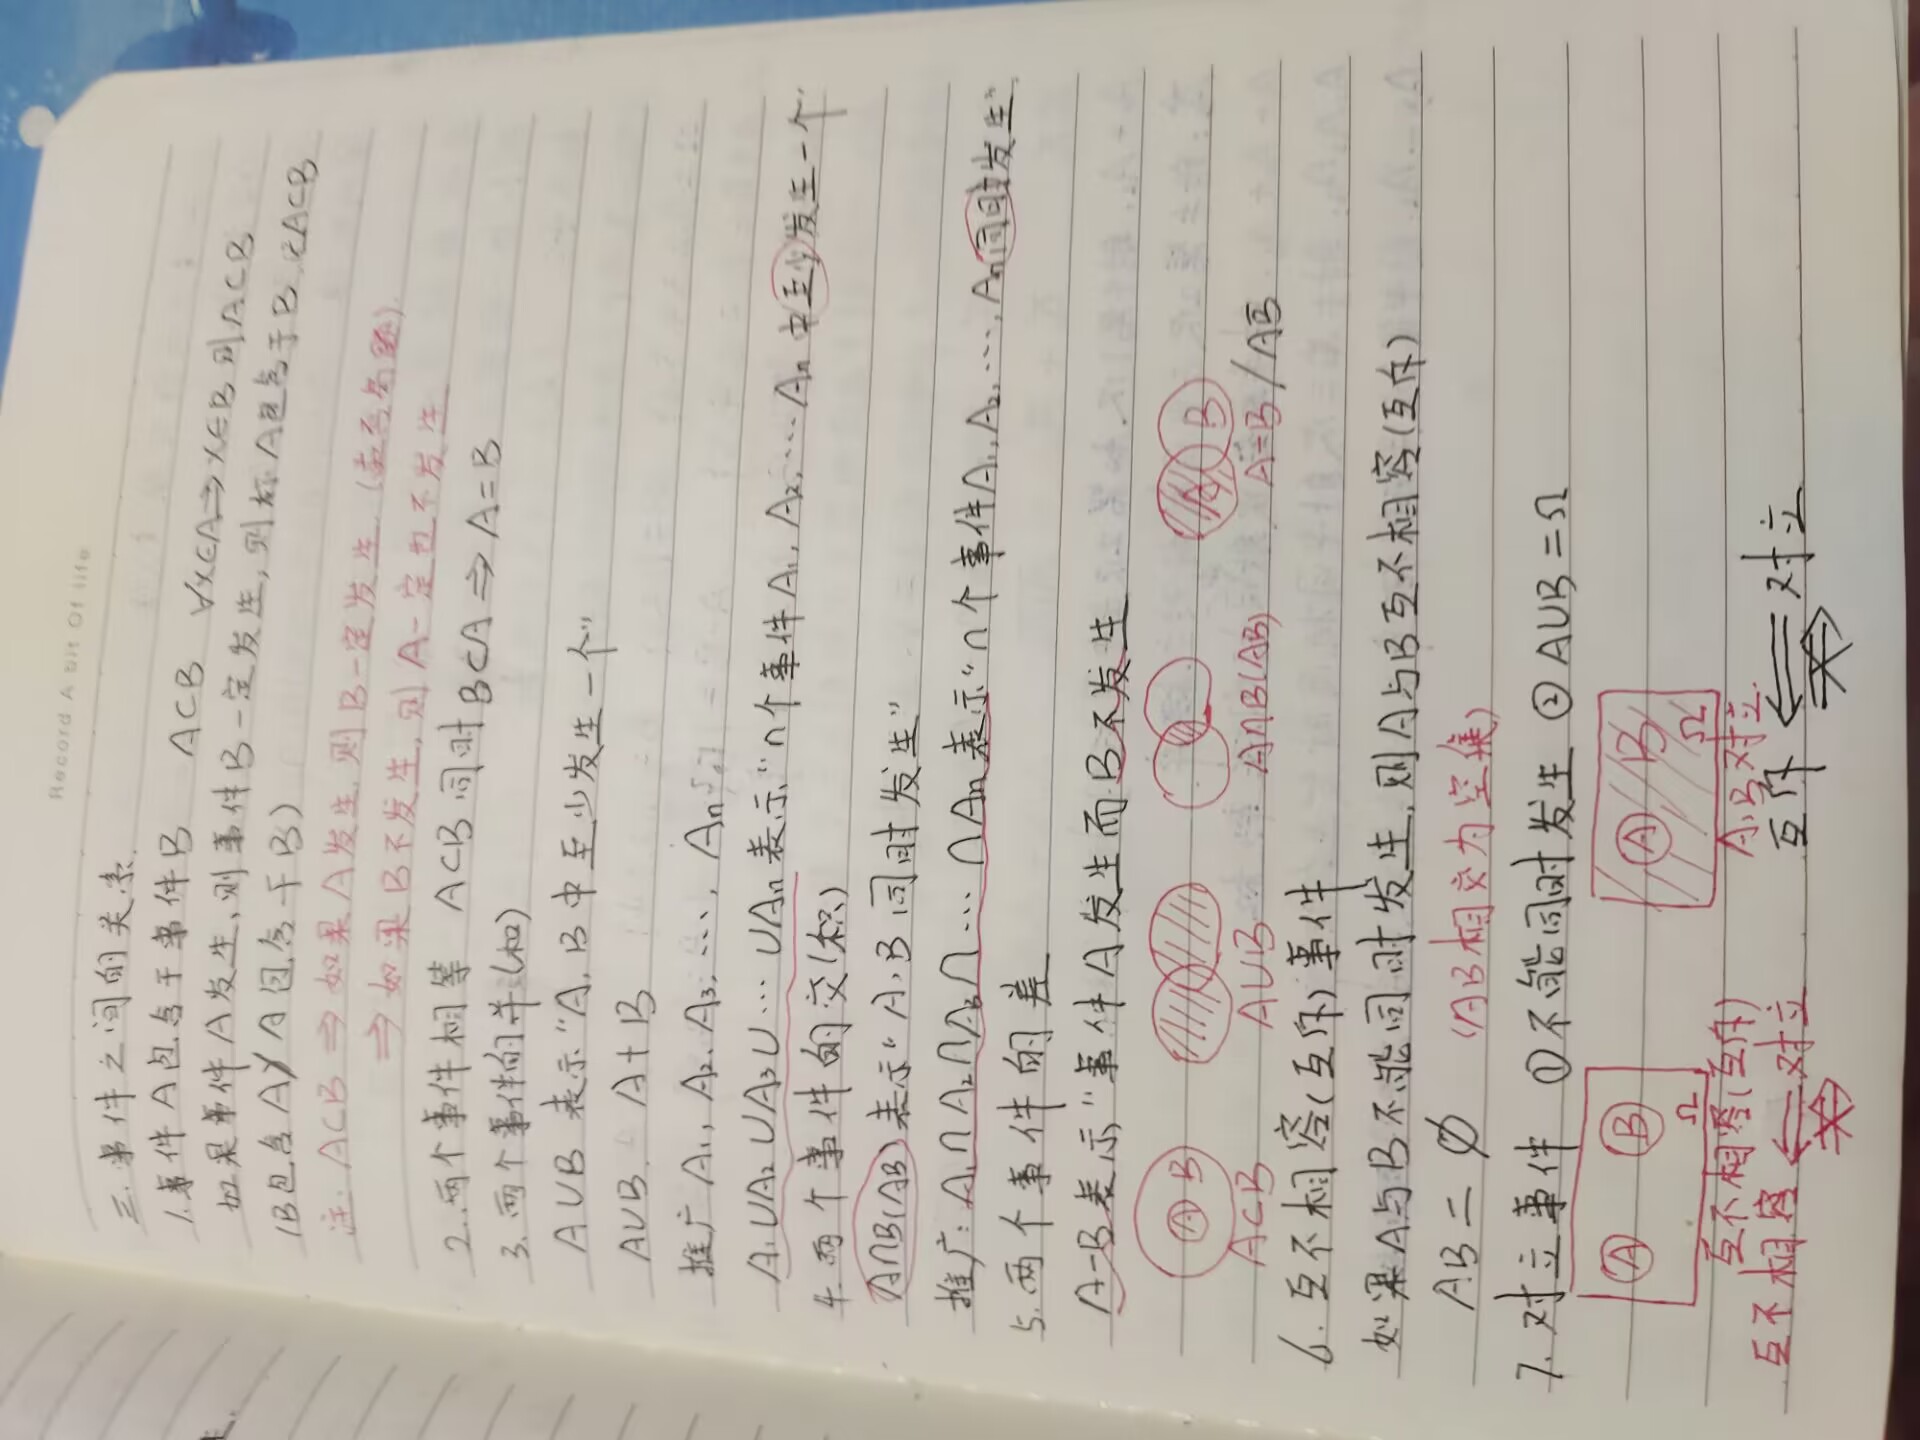 Record A bit Of life
三.事件之间的关系.
1.事件A包含于事件B A⊂B ∀x∈A⇒x∈B则A⊂B
如果事件A发生,则事件B一定发生,则称A包含于B 记A⊂B
(B包含A/A包含于B)
注: A⊂B ⇒如果A发生,则B一定发生
⇒如果B不发生,则A一定也不发生
2.两个事件相等 A⊂B同时B⊂A⇒A=B
3.两个事件的并(和)
A∪B 表示“A,B中至少发生一个”
A∪B A+B
推广A₁,A₂,A₃,…,Aₙ
A₁∪A₂∪A₃∪…∪Aₙ表示“n个事件A₁,A₂,…Aₙ中至少发生一个”
4.两个事件的交(积)
A∩B(AB)表示“A,B同时发生”
推广:A₁∩A₂∩A₃∩…∩Aₙ表示“n个事件A₁,A₂,…,Aₙ同时发生”
5.两个事件的差
A-B表示“事件A发生而B不发生
A B A B
A⊂B A∪B A∩B(AB) A-B/AB̅
6.互不相容(互斥)事件
如果A与B不能同时发生,则A与B互不相容(互斥)
AB=∅ (AB相交为空集)
7.对立事件 ①不能同时发生 ②A∪B=Ω
A B Ω A B Ω
互不相容(互斥) A,B对立.
互不相容⇐对立 互斥⇐对立